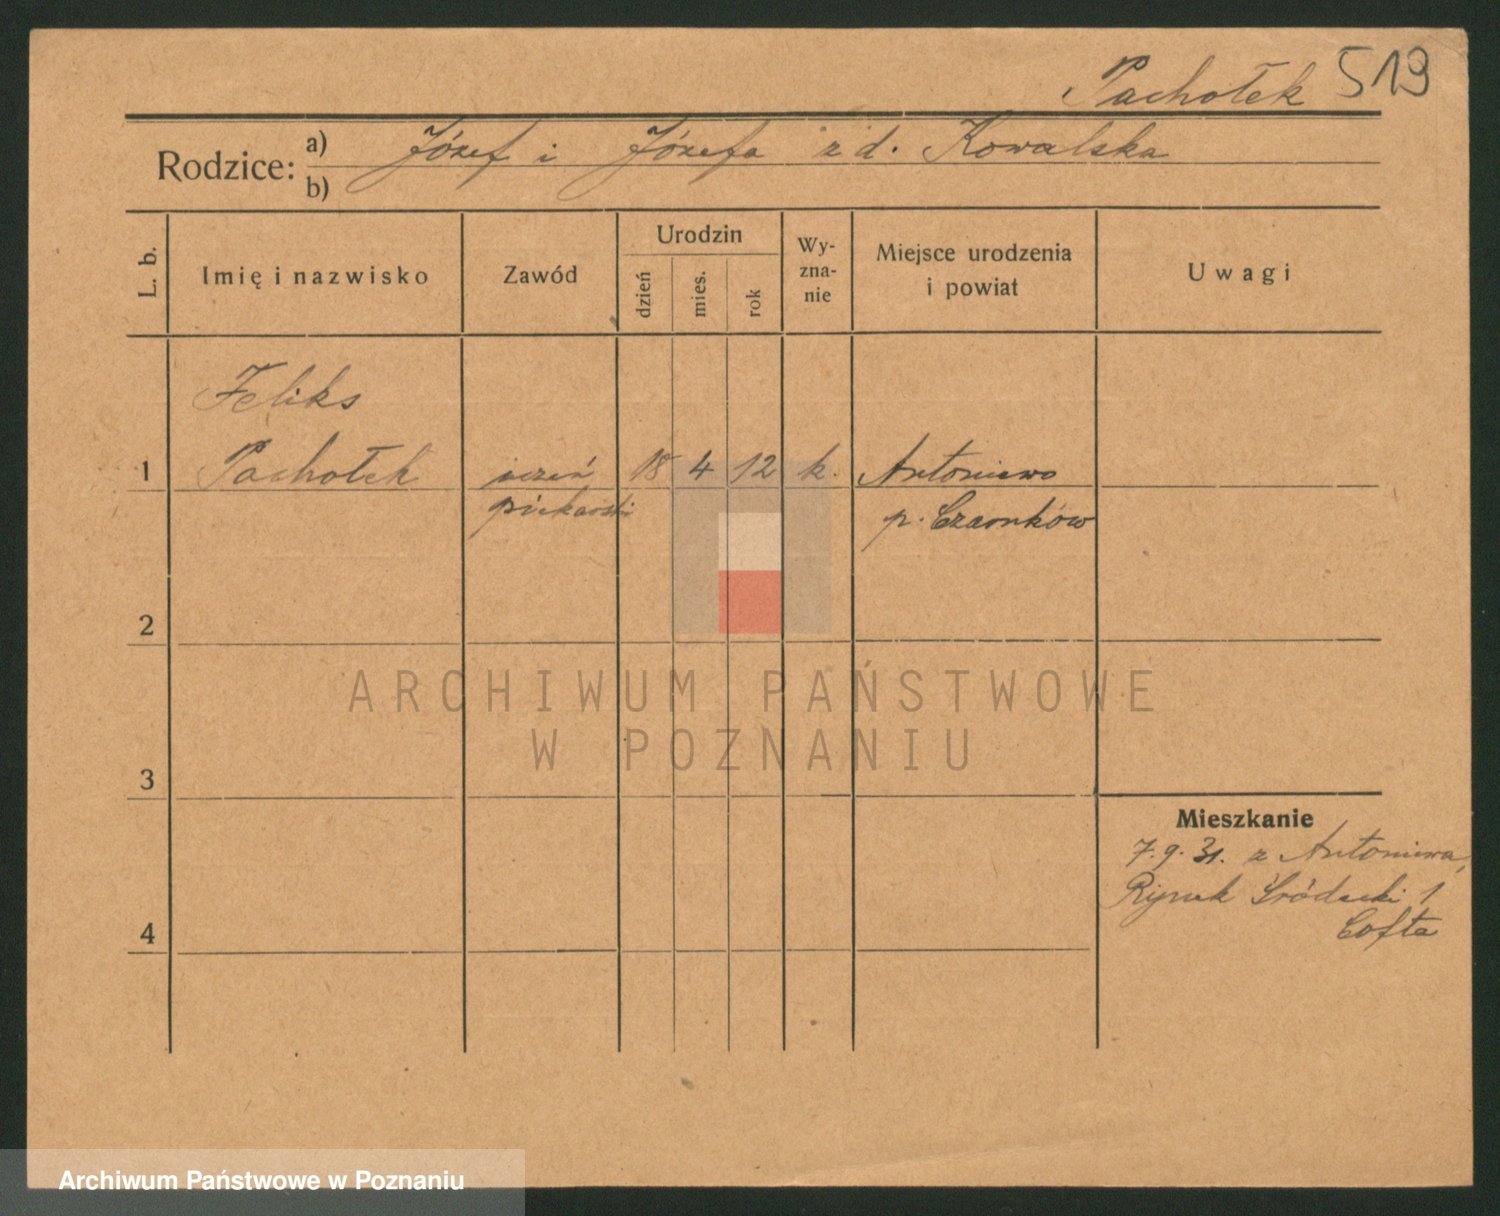 Pachołek 519
Rodzice: a) Józef i Józefa z d. Kowalska
b)
L. b.
Imię i nazwisko
Zawód
Urodzin
dzień
mies.
rok
Wy-
zna-
nie
Miejsce urodzenia
i powiat
Uwagi
Feliks
1 Pachołek uczeń 18 4 12 k. Antoniewo
piekarski p. Czarnków
2
ARCHIWUM PAŃSTWOWE
W POZNANIU
3
Mieszkanie
7.9.31. z Antoniewa,
Rynek Śródecki 1
Cofta
4
Archiwum Państwowe w Poznaniu